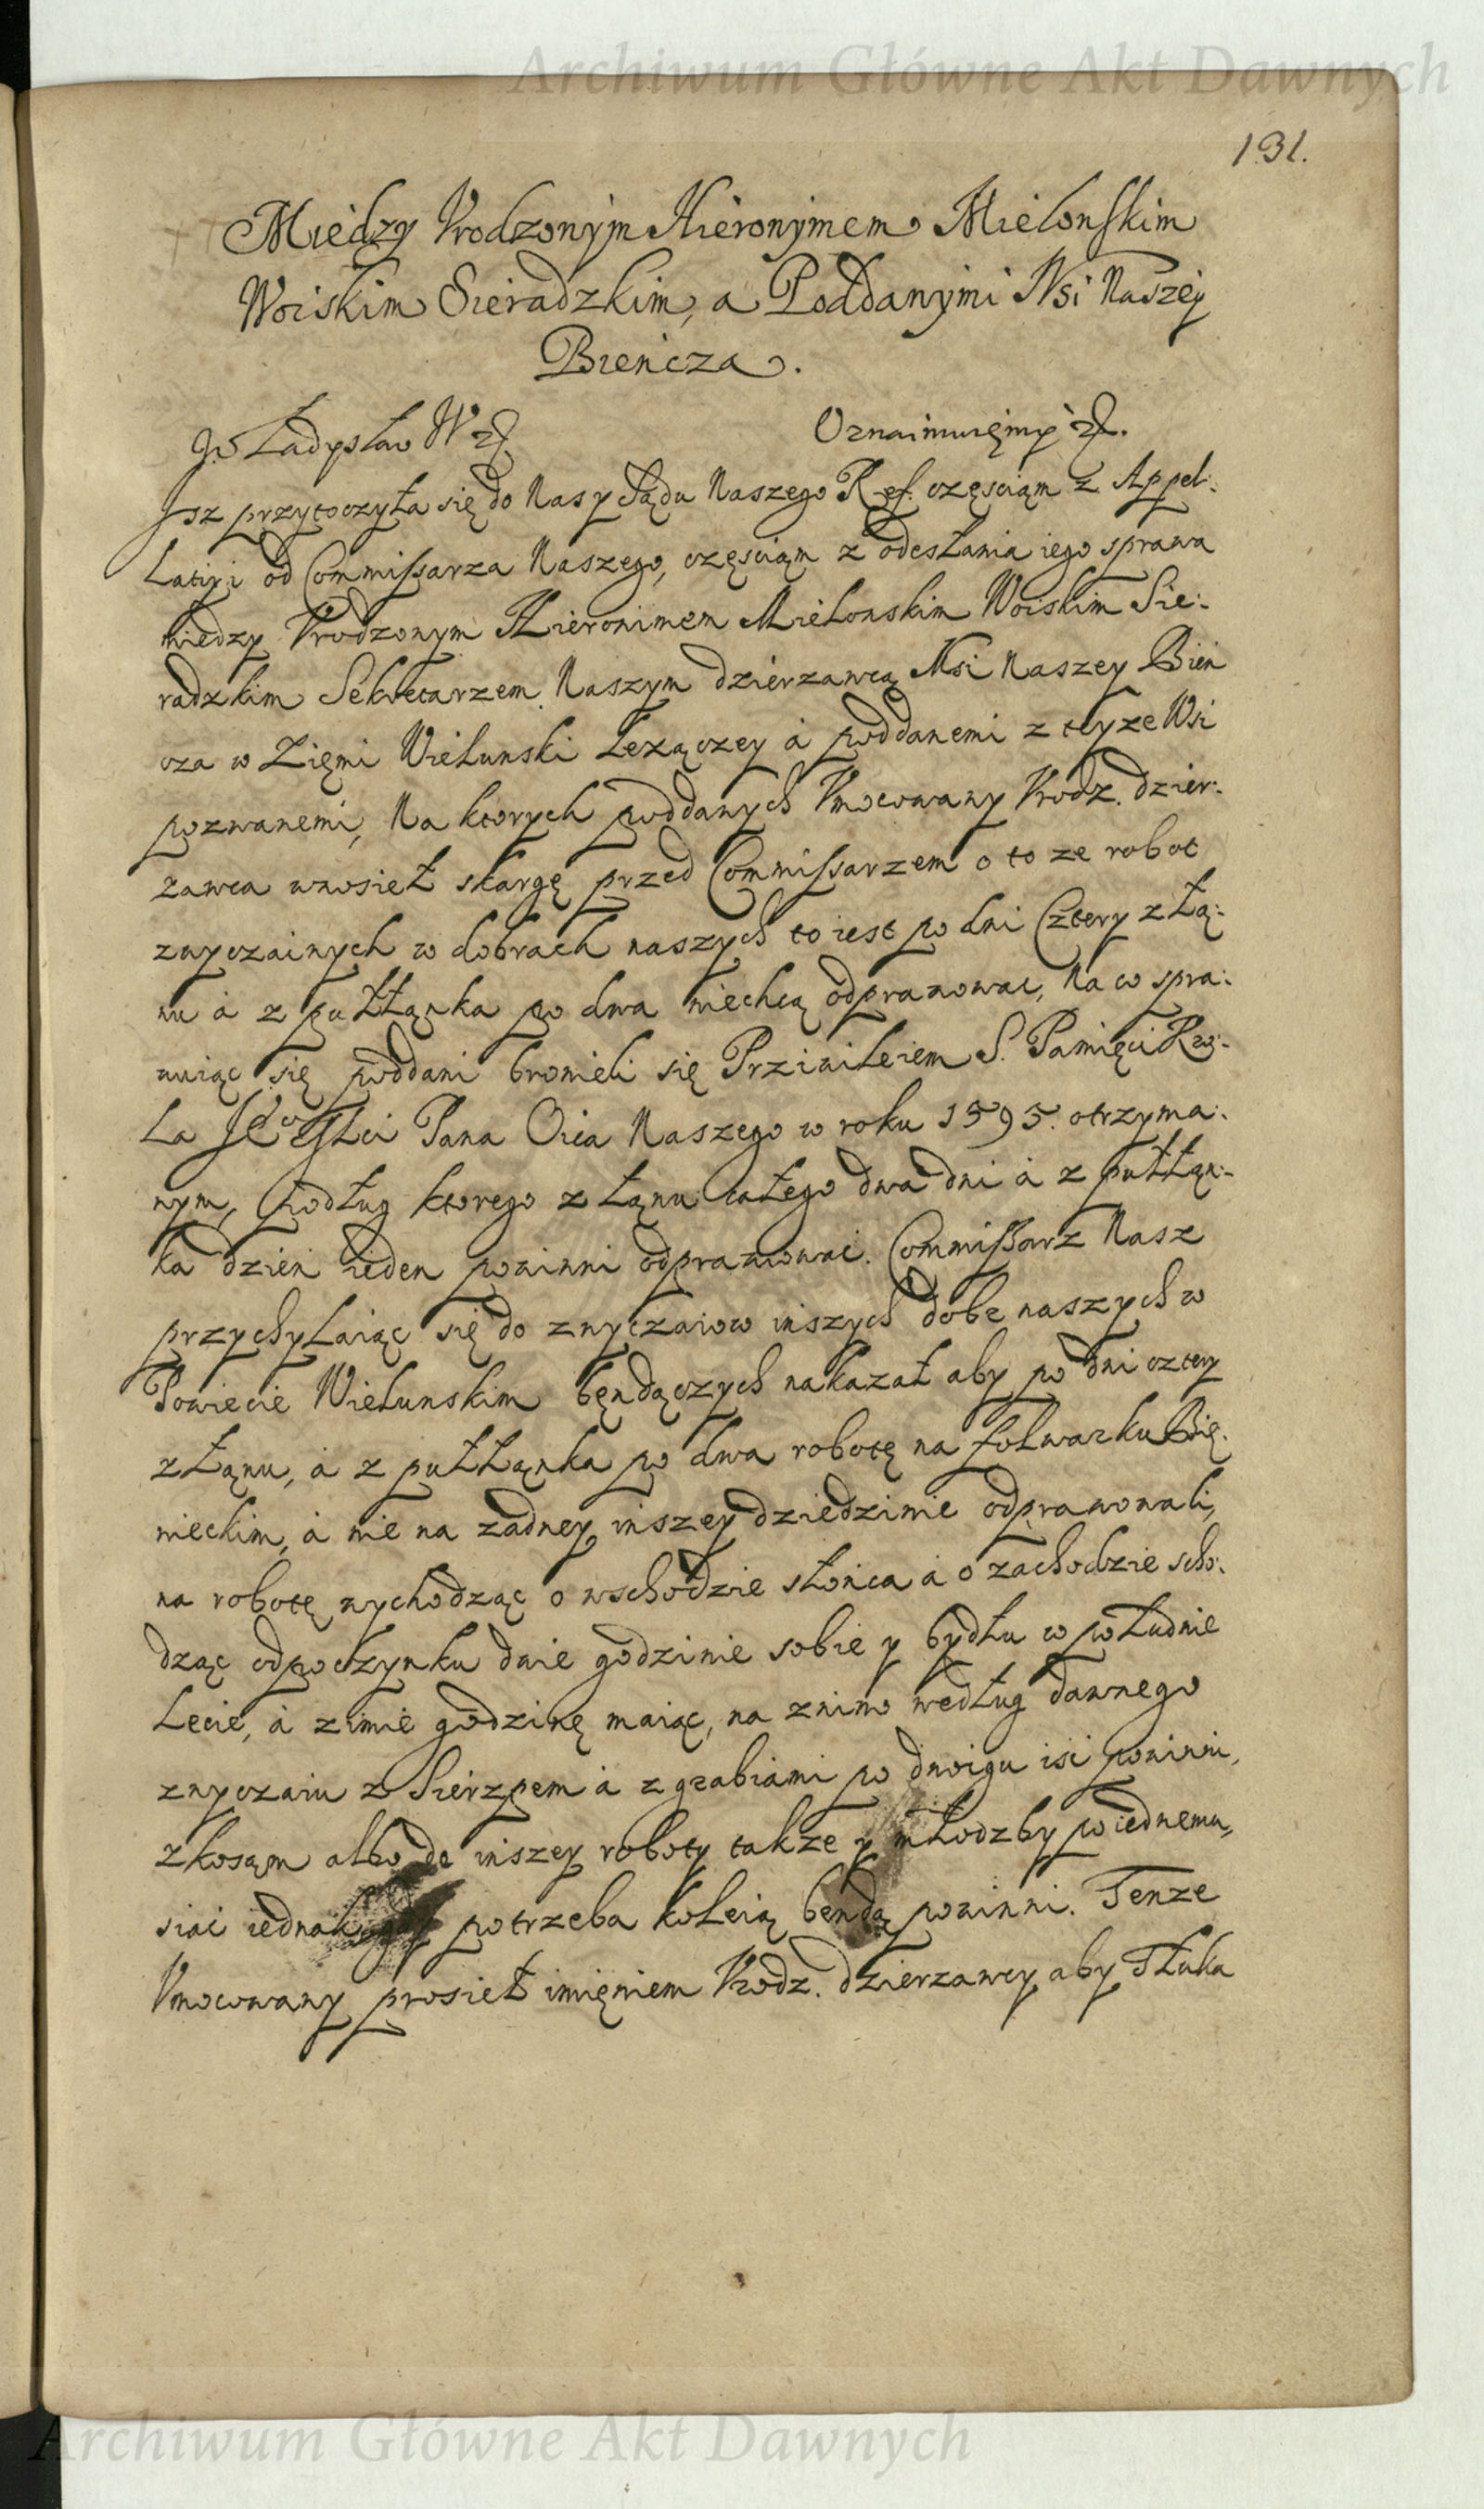 Archiwum Główne Akt Dawnych
131.
Między Vrodzonym Hieronymem Mielonskim
Woiskim Sieradzkim, a Poddanymi Wsi Naszey
Bieńcza.
Władysław IV zc. Oznaimuięmy zc.
Isz przytoczyła się do Nas y Sądu Naszego Ref. częsciąm z Appel:
latiyi od Commissarza Naszego, częsciąm z odesłania iego sprawa
miedzy Vrodzonym Hieronimem Mielonskim Woiskim Sie:
radzkim Sekretarzem Naszym dzierzawcą Wsi Naszey Bień
cza w Zięmi Wielunski Lezączey á poddanemi z teyze Wsi
pozwanemi, Na ktorych poddanych Vmocowany Vrodz. dzier:
zawca wnosieł skargę przed Commissarzem o to ze robot
zwyczainych w dobrach naszych to iest po dni Cztery z łą:
nu á z pułłąnka po dwa niechcą odprawowac, Na co spra:
wuiąc się poddani bronieli się Prziwileiem S. Pamięci Kro:
la Je° Mści Pana Oica Naszego w roku 1595. otrzyma:
nym, Podług ktorego z łąnu całego dwa dni á z pułłąn:
ka dzien ieden powinni odprawowac. Commissarz Nasz
przychylaiąc się do zwyczaiow inszych dobr naszych w
Powiecie Wielunskim będączych nakazał aby po dni cztery
z łąnu, á z pułłąnka po dwa robotę na folwarku Bię:
nieckim, á nie na zadney inszey dziedzinie odprawowali,
na robotę wychodząc o wschodzie słońca á o zachodzie scho:
dząc odpoczynku dwie godzinie sobie y bydłu w południe
Lecie, á zimie godzinę maiąc, na zniwo według dawnego
zwyczaiu z Sierzpem á z grabiami po dwoigu isć powinni,
z kosąm albo do inszey roboty takze y młodzby po iednemu,
siac iednak gdy potrzeba koleią bendą powinni. Tenze
Vmocowany prosieł imięniem Vrodz. dzierzawcy aby Tłuka
Archiwum Główne Akt Dawnych